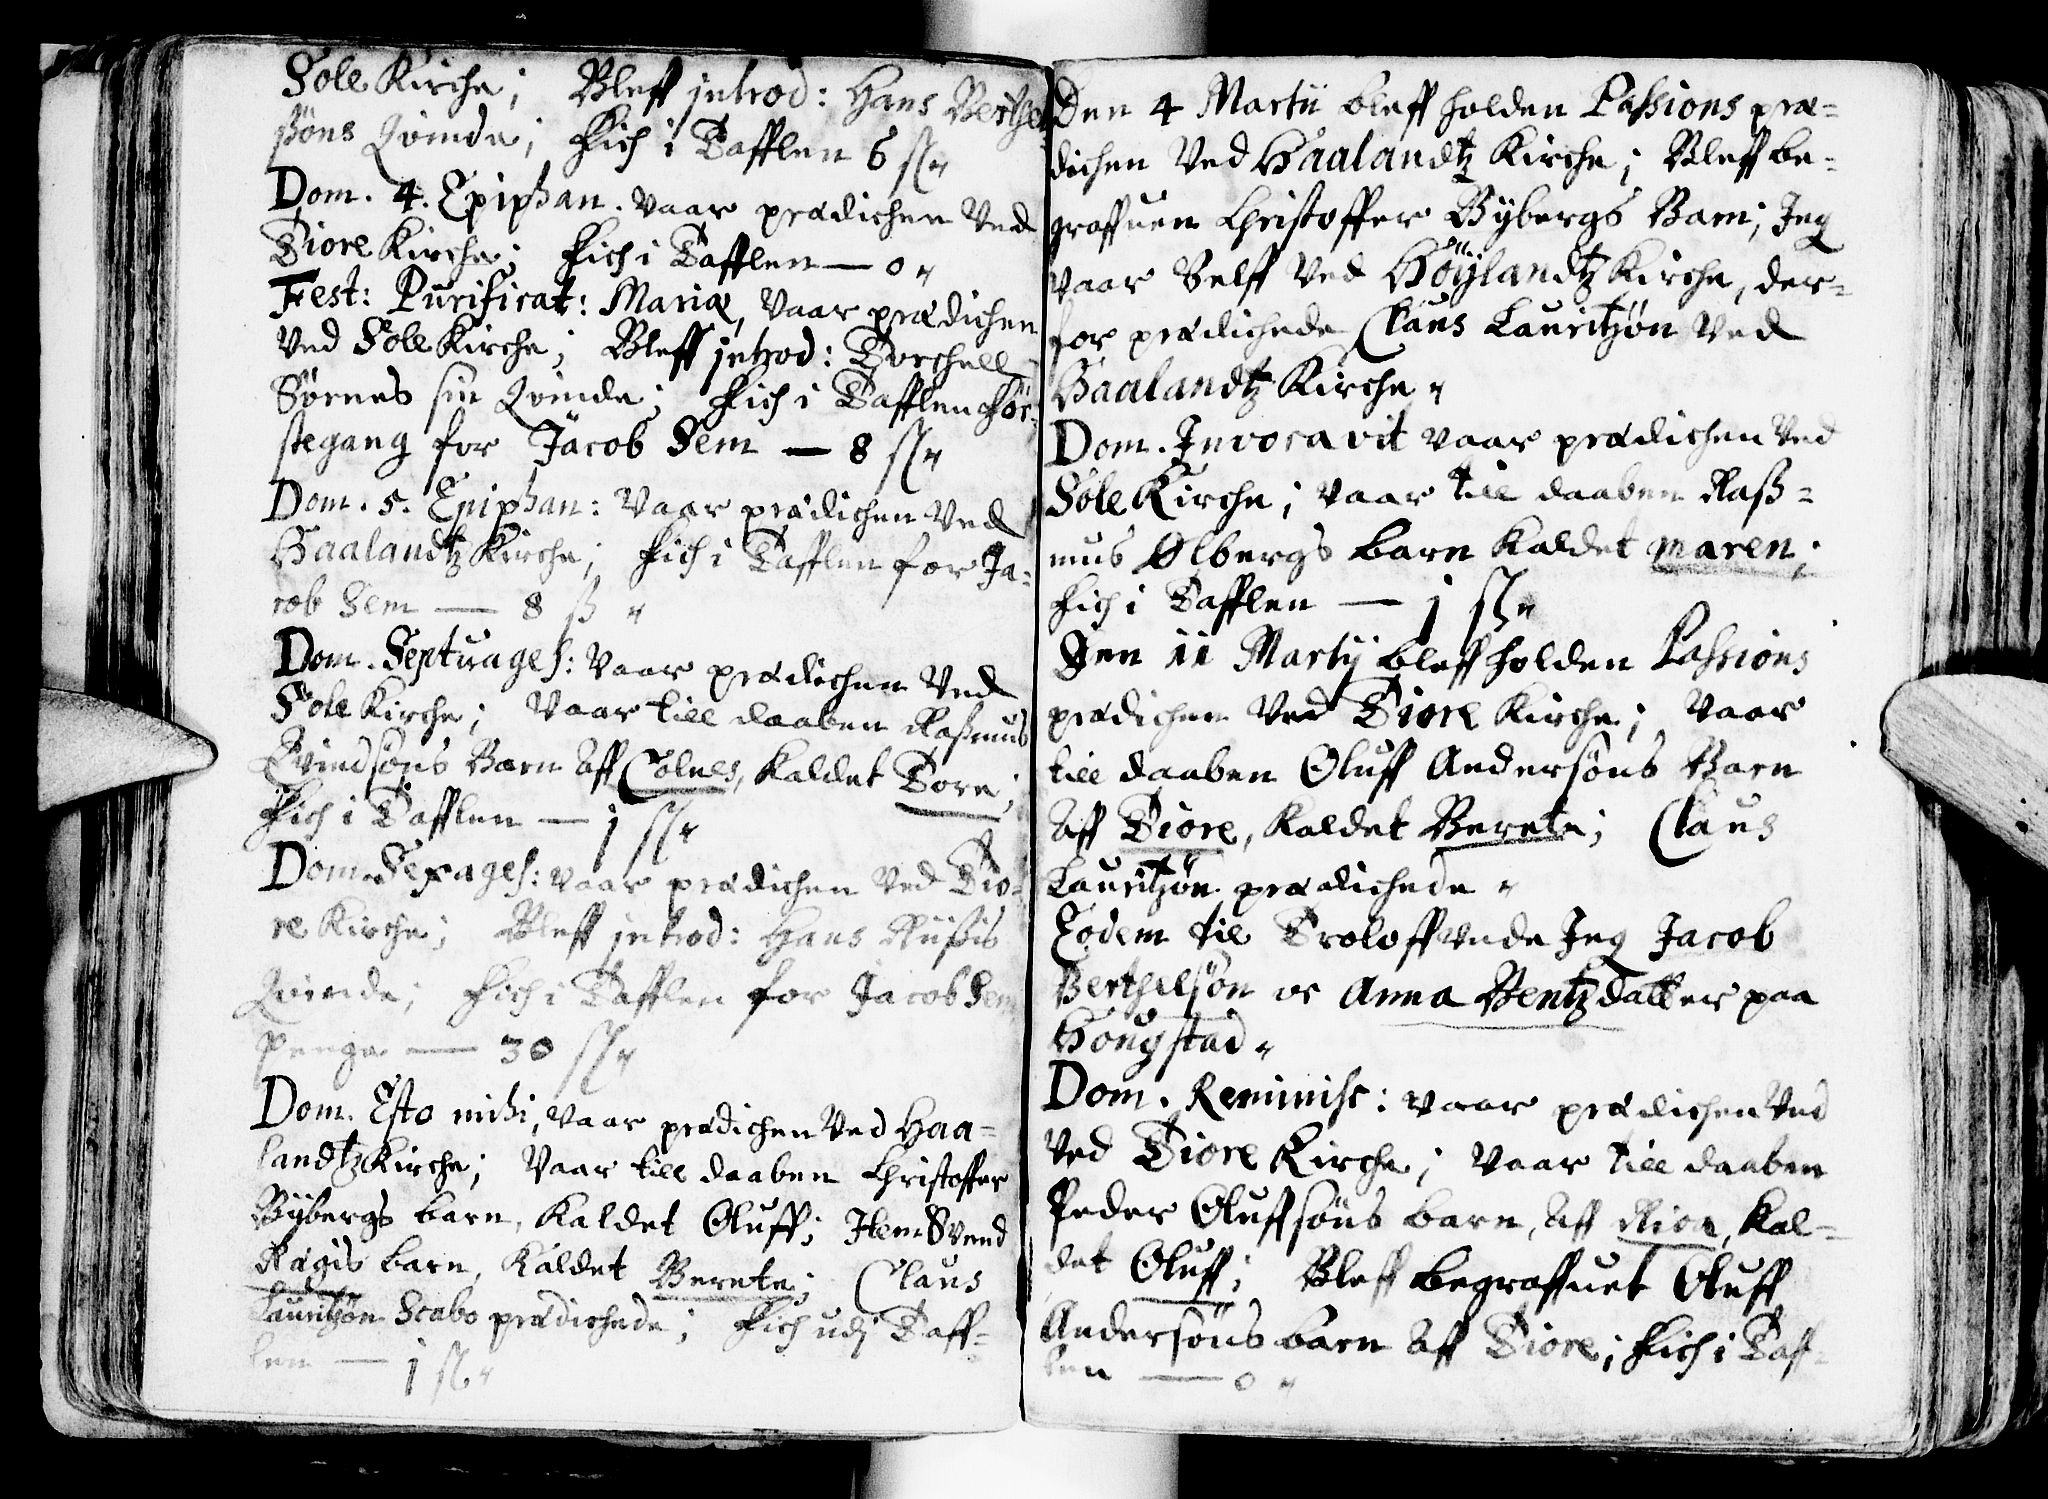 Sole Kirche; Bleff introd: Hans Berthel-
ssøns Qvinde; Fich i Tafflen 6 ss„
Dom. 4. Epiphan. vaar prædichen Ved
Tiore Kirche; Fich i Tafflen — 0„
Fest: Purificat: Mariæ, vaar prædichen
Ved Sole Kirche; Bleff introd: Torchell
Sørnes sin Qvinde; Fich i Tafflen før-
stegang for Jacob Sem — 8 ss„
Dom. 5. Epiphan: Vaar prædichen Ved
Haalandtz Kirche; Fich i Tafflen for Ja-
cob Sem — 8 ß „
Dom. Septuages: Vaar prædichen Ved
Sole Kirche; Vaar till daaben Rasmus
Evindsøns Barn Aff Colnes, Kaldet Tore;
Fich i Tafflen — j ss„
Dom. Sexages: vaar prædichen Ved Tio-
re Kirche; Bleff introd: Hans Riisis
Qvinde; Fich i Tafflen for Jacob Sem
penge — 30 ss„
Dom. Esto mihi, vaar prædichen Ved Haa-
landtz Kirche; Vaar till daaben Christoffer
Bÿbergs barn, Kaldet Oluff; Item Svend
Rægis barn, Kaldet Berete; Claus
Lauritzøn Scabo prædichede; Fich udj Taff-
len — j ss„
Den 4 Martii bleff holden Passions præ-
dichen Ved Haalandtz Kirche; Bleff be-
graffuen Christoffer Bÿbergs Barn; Jeg
vaar Self Ved Höÿlandtz Kirche, der-
for prædichede Claus Lauritzøn Ved
Haalandtz Kirche„
Dom. Invocavit vaar prædichen Ved
Sole Kirche; vaar till daaben Raß-
mus Ølbergs barn Kaldet Maren;
Fich i Tafflen — j ss„
Den 11 Martij bleff holden Passions
prædichen Ved Tiore Kirche; Vaar
till daaben Oluff Andersøns Barn
Aff Tiore, Kaldet Berete; Claus
Lauritzøn prædichede„
Eodem til Troloffvede Jeg Jacob
Berthelsøn oc Anna Bentzdatter paa
Hougstad„
Dom. Reminisc: vaar prædichen Ved
Ved Tiore Kirche; Vaar till daaben
Peder Oluffsøns barn, Aff Rioe, Kal-
det Oluff; Bleff begraffuet Oluff
Andersøns barn Aff Tiore; Fich i Taf-
len — 0 „